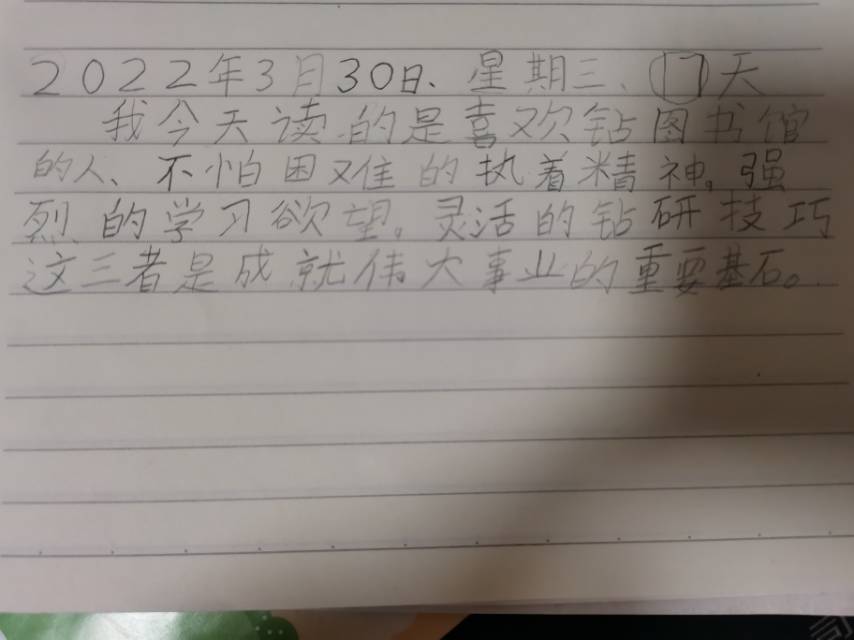 2022年3月30日、星期三、⑰天
我今天读的是喜欢钻图书馆
的人、不怕困难的执着精神。强
烈的学习欲望。灵活的钻研技巧
这三者是成就伟大事业的重要基石。